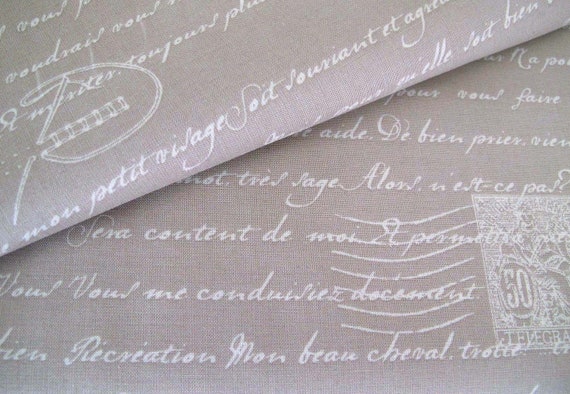 voudrais vous
mériter. toujours plus
mon petit visage Soit souriant et agréa
qu'elle soit bien
pour vous faire
aide. De bien prier. vien
mot. très sage Alors. n'est-ce pas?
Sera content de moi Et permettra
Vous Vous me conduisiez document.
bien Récréation Mon beau cheval. trotte
50
TELEGRA